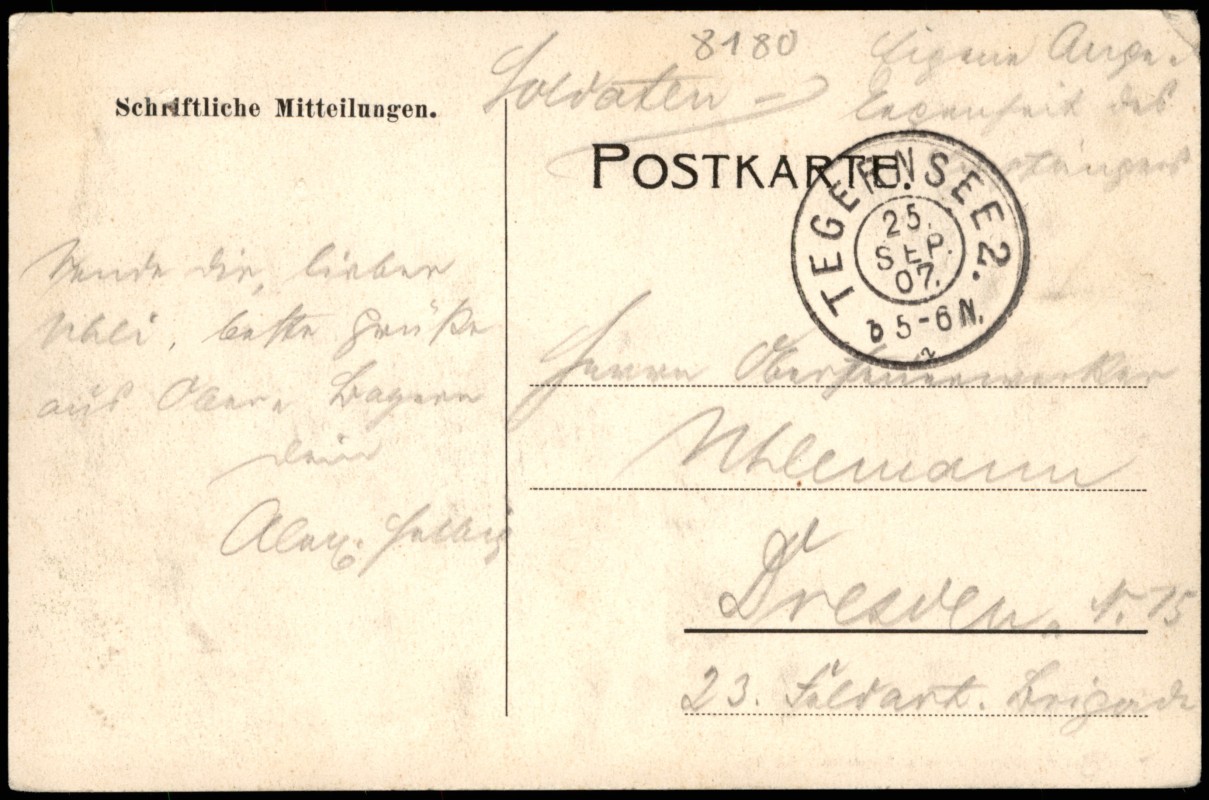 8180
Soldaten =
Eigene Ange-
legenheit des
Empfängers
Schriftliche Mitteilungen.
POSTKARTE.
TEGERNSEE 2.
25.
SEP.
07.
5-6 N.
Sende dir, lieber
Uhli, beste Grüße
aus Obere Bayern
dein
Alex. Helbig
Herrn Oberfeuerwerker
Uhlemann
Dresden. N. 15
23. Feldart. Brigade